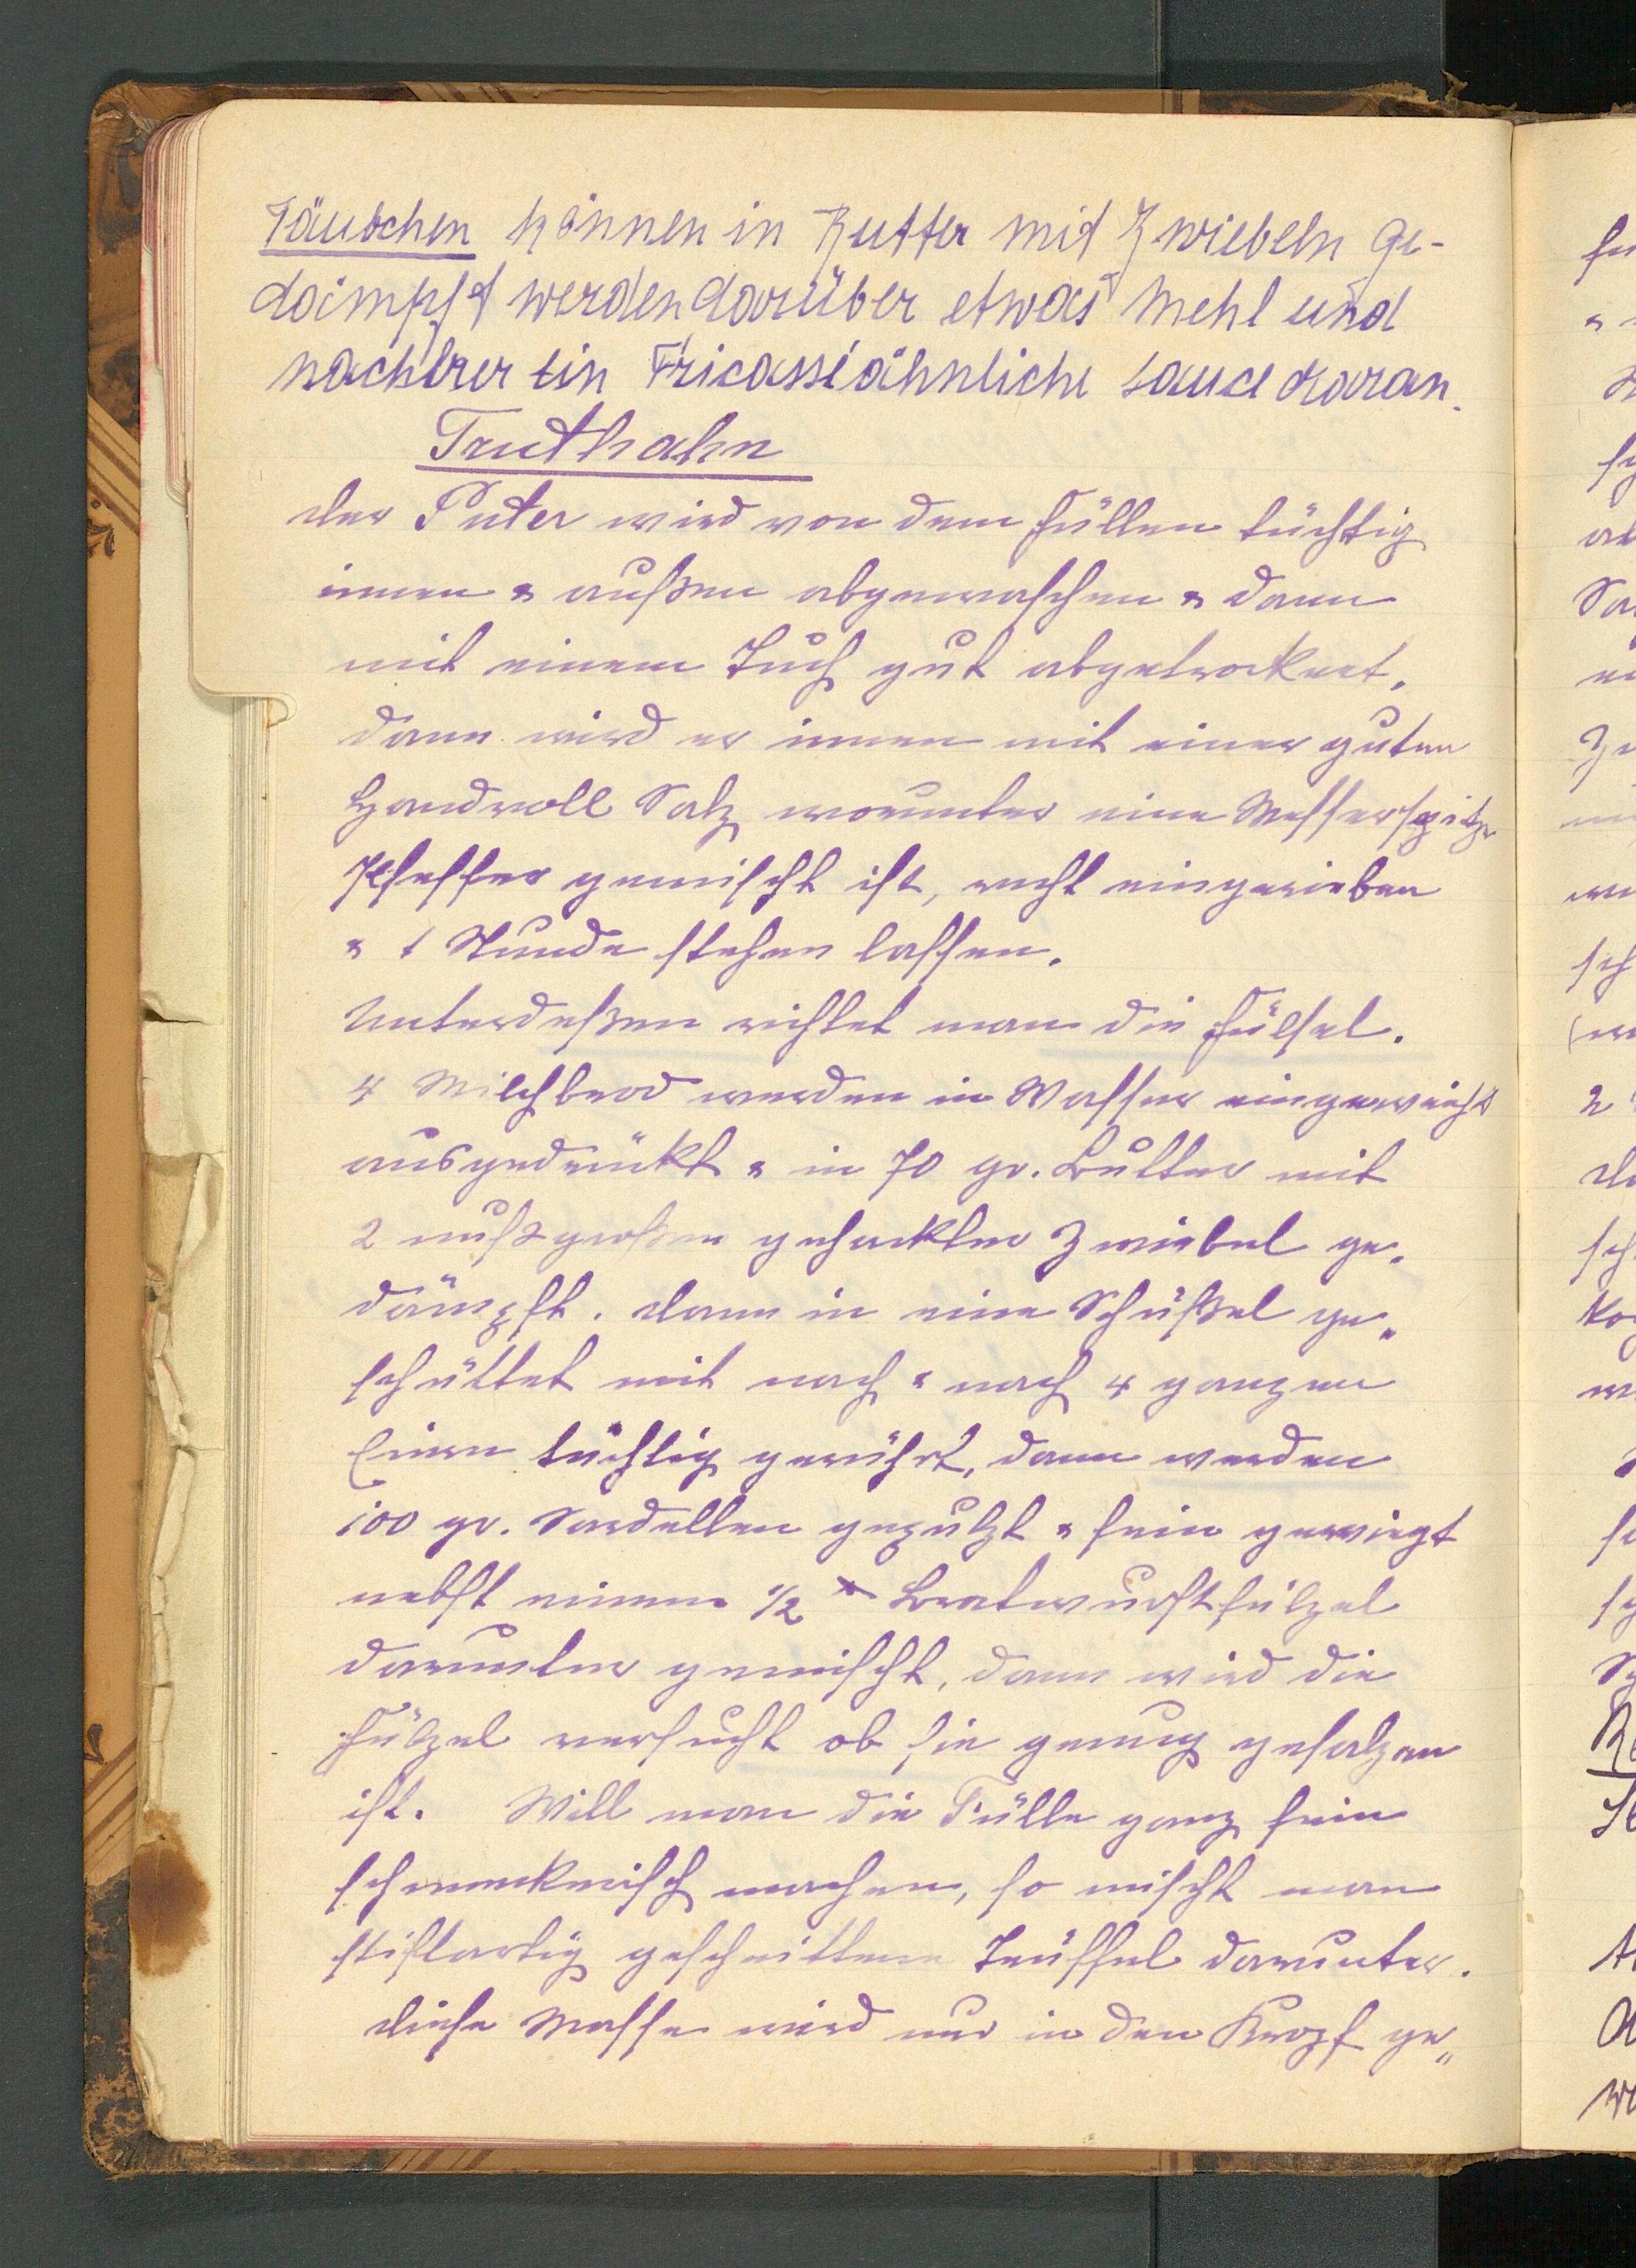 Täubchen können in Butter mit Zwiebeln ge-
dämpft werden darüber etwas Mehl und
nachher ein Fricassé ähnliche Sauce daran.
Truthahn
der Puter wird von dem Füllen tüchtig
innen & außen abgewaschen & dann
mit einem Tuch gut abgetrocknet,
dann wird er innen mit einer guten
Handvoll Salz worunter eine Messerspitze
Pfeffer gemischt ist, recht eingerieben
& 1 Stunde stehen lassen.
Unterdeßen richtet man die Füllsel.
4 Milchbrod werden in Wasser eingeweicht
ausgedrückt & in 70 gr. Butter mit
2 nußgroßen gehackter Zwiebel ge-
dämpft. dann in eine Schüßel ge„
schüttet mit nach & nach 4 ganzen
Eiern tüchtig gerührt, dann werden
100 gr. Sardellen geputzt & fein gewiegt
nebst einem 1/2 Bratwurstfülzel
darunter gemischt, dann wird die
Fülzel versucht ob sie genug gesalzen
ist. Will man die Fülle ganz fein
schmeckerisch machen, so mischt man
stiftartig geschnittene Trüffel darunter.
diese Masse wird nur in den Kropf ge„